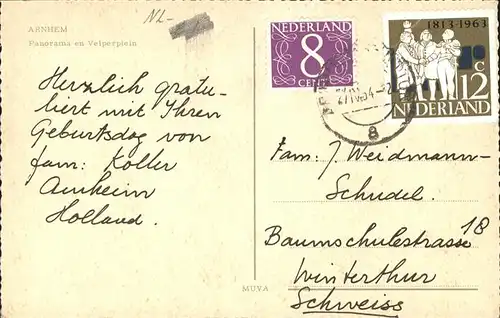 NL-
ARNHEM
Panorama en Velperplein
Herzlich gratu-
liert mit Ihren
Geburtsdag von
fam: Koller
Arnheim
Holland.
NEDERLAND
8
CENT
1813-1963
12 C
NEDERLAND
Fam: J Weidmann-
Schudel.
Baumschulestrasse 18
Winterthur
Schweiss
MUVA